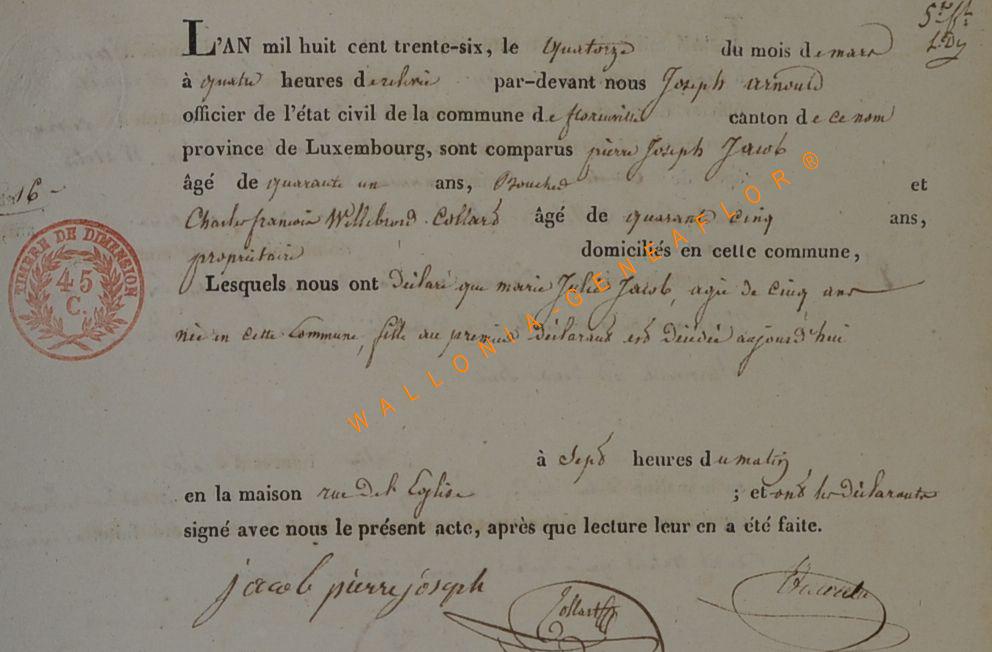 L'AN mil huit cent trente-six, le quatorze du mois de mars
à quatre heures de relevée par-devant nous Joseph arnould
officier de l'état civil de la commune de florenville canton de ce nom
province de Luxembourg, sont comparus pierre Joseph Jacob
âgé de quarante un ans, Boucher et
Charles françois Willebrord Collard âgé de quarante cinq ans,
propriétaire domiciliés en cette commune,
Lesquels nous ont déclaré que marie Julie Jacob, agée de cinq ans
née en cette Commune, fille au premier déclarant est décédée aujourd'hui
à Sept heures du matin
en la maison rue de l'Eglise ; et ont les déclarants
signé avec nous le présent acte, après que lecture leur en a été faite.
jacob pierre joseph
Collard
16
TIMBRE DE DIMENSION
45
C.
WALLONIA-GENEAFLOR ®